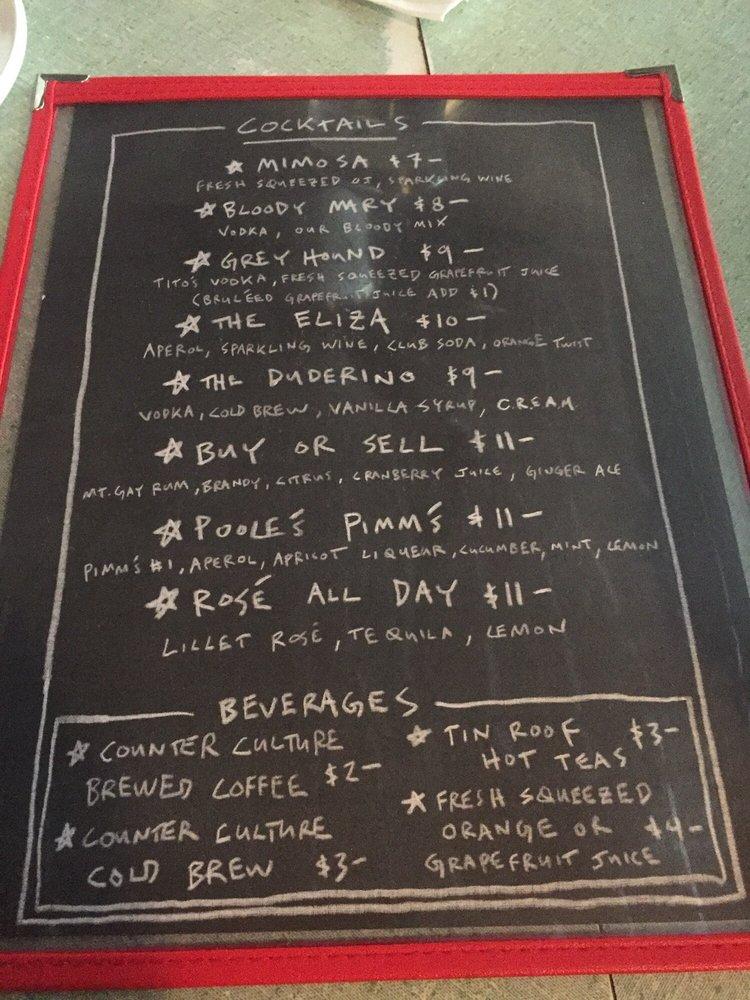 COCKTAILS
MIMOSA $7-
FRESH SQUEEZED OJ, SPARKLING WINE
BLOODY MARY $8-
VODKA, OUR BLOODY MIX
GREY HOUND $9-
TITO'S VODKA, FRESH SQUEEZED GRAPEFRUIT JUICE
(BRULÉED GRAPEFRUIT JUICE ADD $1)
THE ELIZA $10-
APEROL, SPARKLING WINE, CLUB SODA, ORANGE TWIST
THE DUDERINO $9-
VODKA, COLD BREW, VANILLA SYRUP, C.R.E.A.M.
BUY OR SELL $11-
MT. GAY RUM, BRANDY, CITRUS, CRANBERRY JUICE, GINGER ALE
POOLE'S PIMM'S $11-
PIMM'S #1, APEROL, APRICOT LIQUEUR, CUCUMBER, MINT, LEMON
ROSÉ ALL DAY $11-
LILLET ROSÉ, TEQUILA, LEMON
BEVERAGES
COUNTER CULTURE
BREWED COFFEE $2-
COUNTER CULTURE
COLD BREW $3-
TIN ROOF $3-
HOT TEAS
FRESH SQUEEZED
ORANGE OR $4-
GRAPEFRUIT JUICE